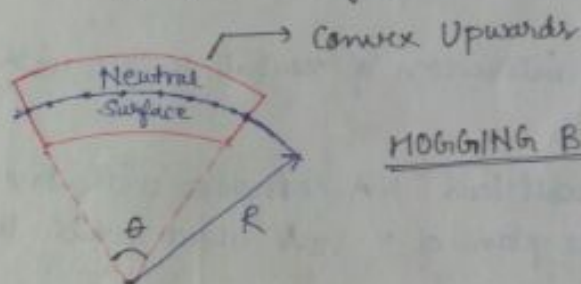 Convex Upwards
Neutral
Surface
HOGGING B
R
θ